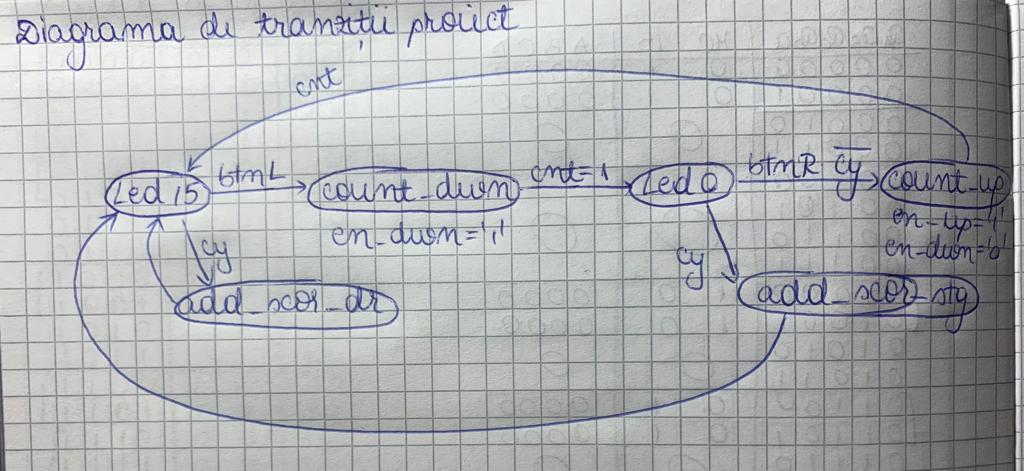 Diagrama de tranziții proiect
cnt
Led 15 btnL count_down cnt=1 Led 0 btnR c̅y̅ count_up
en_down='1'
en_up='1'
en_down='0'
cy
cy
add_scor_dr
add_scor_stg